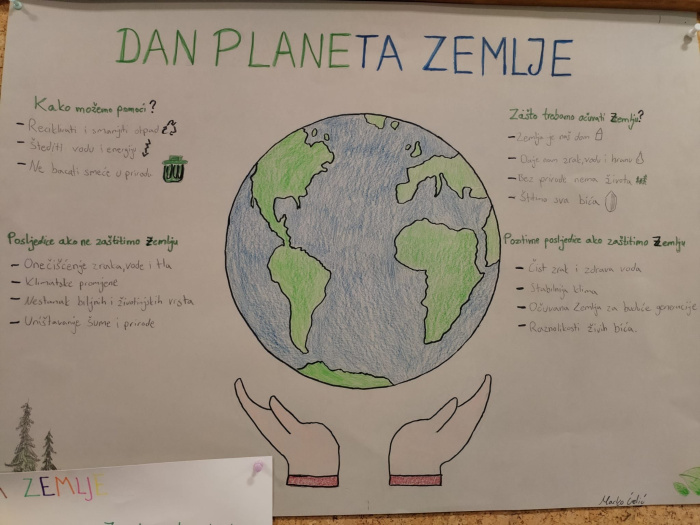 DAN PLANETA ZEMLJE
Kako možemo pomoći?
- Reciklirati i smanjiti otpad
- Štediti vodu i energiju
- Ne bacati smeće u prirodu
Posljedice ako ne zaštitimo Zemlju
- Onečišćenje zraka, vode i tla
- Klimatske promjene
- Nestanak biljnih i životinjskih vrsta
- Uništavanje šume i prirode
Zašto trebamo očuvati Zemlju?
- Zemlja je naš dom
- Daje nam zrak, vodu i hranu
- Bez prirode nema života
- Štitimo sva bića
Pozitivne posljedice ako zaštitimo Zemlju
- Čist zrak i zdrava voda
- Stabilnija klima
- Očuvana Zemlja za buduće generacije
- Raznolikosti živih bića.
Marko
A ZEMLJE